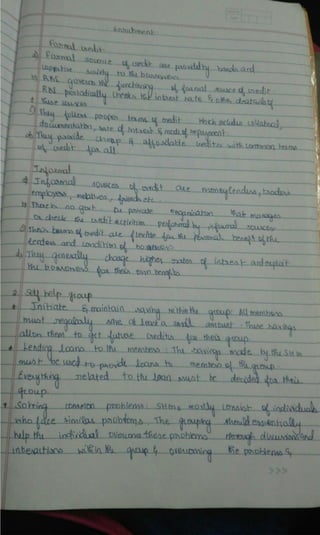 Enrichment
Formal credit
a) Formal source of credit are provided by banks and
cooperative society to the borrowers
b) RBI governs the functioning of formal source of credit
RBI periodically checks the interest rate & other
c) They follow proper terms of credit which includes collateral,
documentation, rate of interest & mode of repayment.
d) They provide cheap & affordable credits with common terms
of credit for all.
Informal
a) Informal sources of credit are moneylenders, traders
employers, relatives, friends etc.
b) There's no govt. or private organisation that manages
or checks the credit activities performed by informal sources
c) Their terms of credit are flexible for the personal benefit of the
lenders and condition of borrowers
d) They generally charge higher rates of interest and exploit
the borrowers for their own benefits
2. Self help group
• Initiate & maintain saving within the group: All members
must regularly save at least a small amount. These savings
allow them to get future credits for their group
• Lending loans to the members: The savings made by the SHGs
must be used to provide loans to members of the group
Everything related to the loan must be decided for their
group.
• Solving common problems: SHGs mostly consist of individuals
who face similar problems. The grouping should essentially
help the individual overcome these problems through discussions and
interactions within the group & overcoming the problems &
>>>